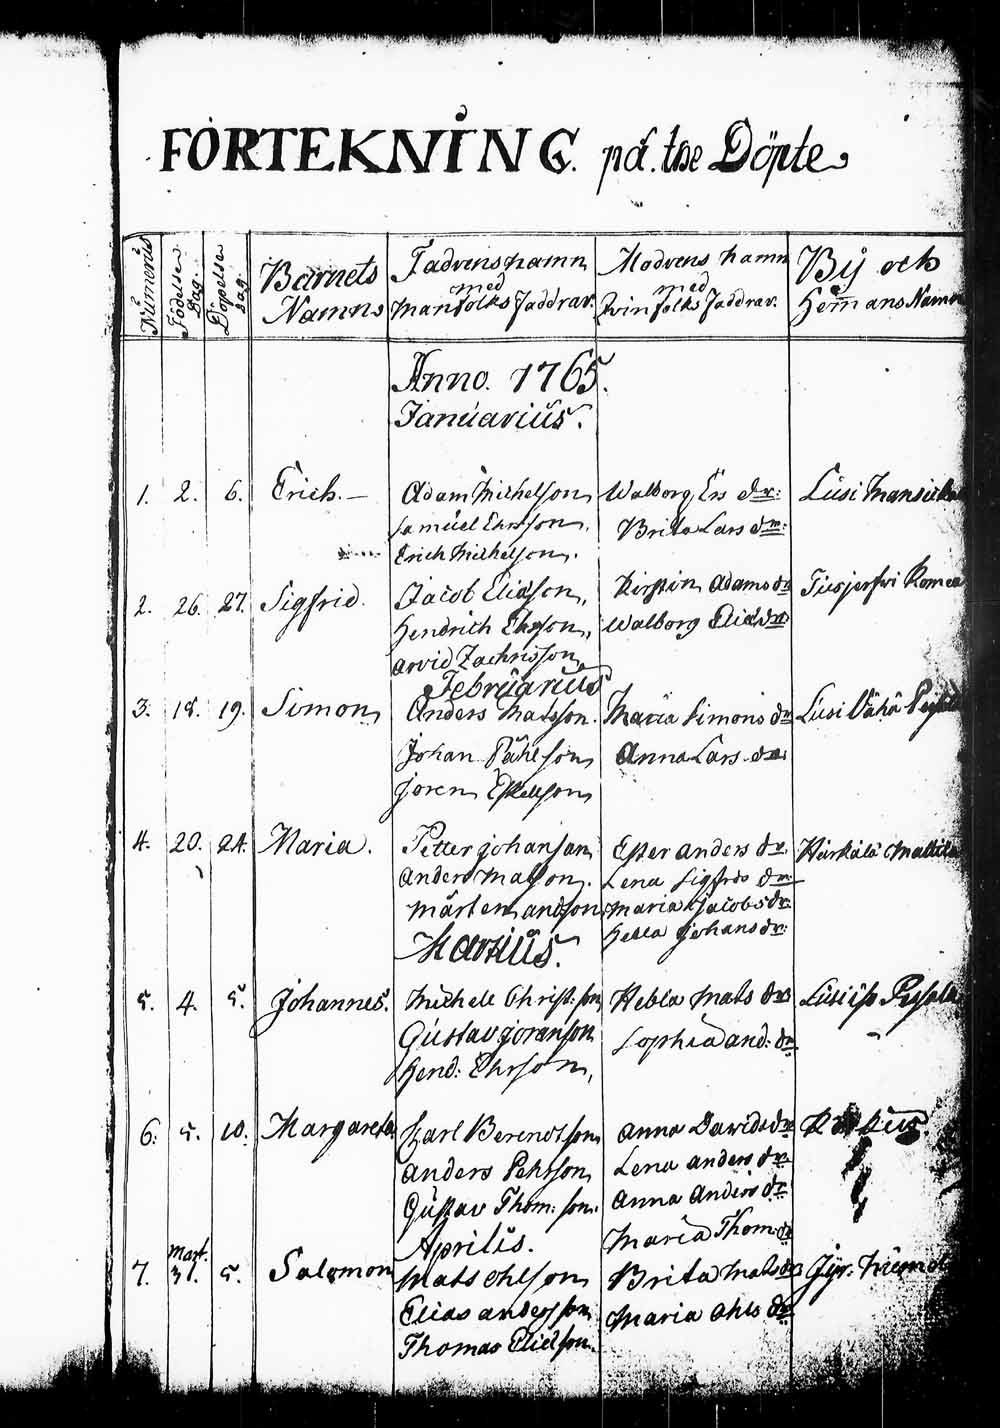 FÖRTEKNING. på. the Döpte
Numerus Födelse Dag. Döpelse dag Barnets Namn Fadrens namn med Manfolks Faddrar. Modrens namn med Qvinfolks Faddrar. By och Hemans Namn
Anno. 1765.
Januarius.
1. 2. 6. Erich. Adam Michelson Walborg Ers dr: Lusi Mansicka
Samuel Ersson. Brita Lars dr:
Erich Michelson.
2. 26. 27. Sigfrid. Jacob Eliæson, Kirstin Adams dr
Hendrich Ersson, Walborg Eliæ dr
Arvid Zachrisson
Februarius
3. 18. 19. Simon Anders Matsson. Maria Simons dr Lusi Vähä
Johan Påhlson Anna Lars dr
Joren Eskelson
4. 20. 24. Maria. Petter Johanson Ester Anders dr. Härkälä Mattila
Anders Matson. Lena Sigfrids dr
Mårten Andson Maria Jacobs dr
Martius. Hebla Johans dr:
5. 4. 5. Johannes. Michell Christ: son Hebla Mats dr Lusi
Gustav Joranson Sophia And: dr
Hend: Ehrson,
6. 5. 10. Margareta Carl Berendtson Anna Davids dr
Anders Pehrson Lena Anders dr
Gustav Thom: son. Anna Anders dr
Aprilis. Maria Thom: dr
7. Mart. 31. 5. Salomon Mats Ohlson Brita Mats dr
Elias Andersson Maria Ohls dr
Thomas Eliæson.